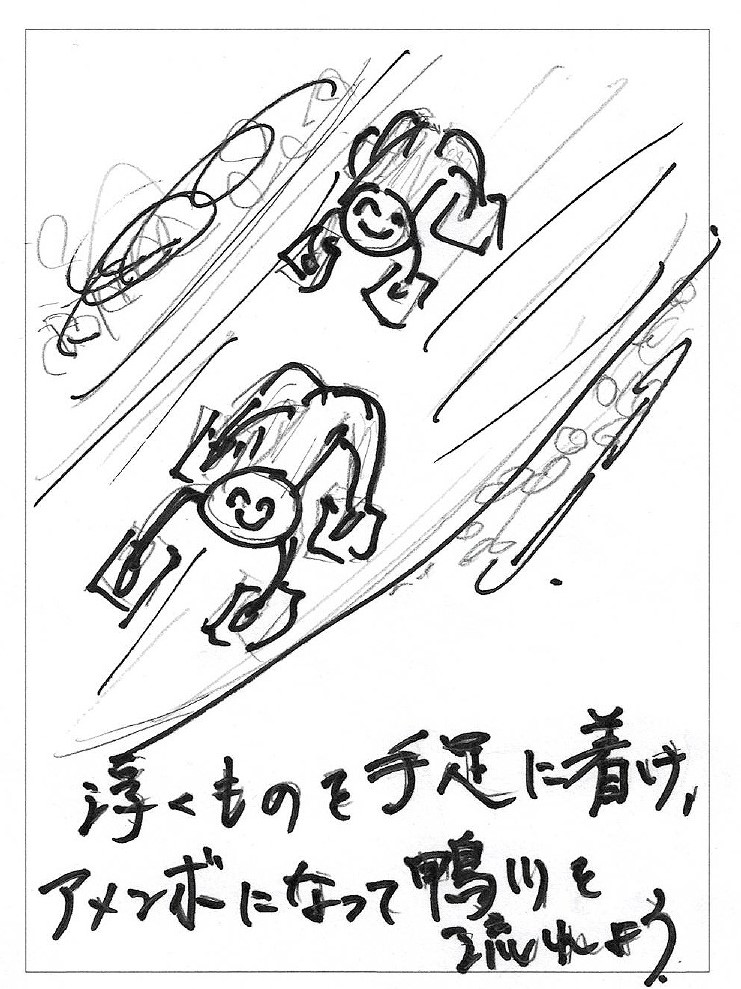 浮くものを手足に着け、
アメンボになって鴨川を
流れよう。